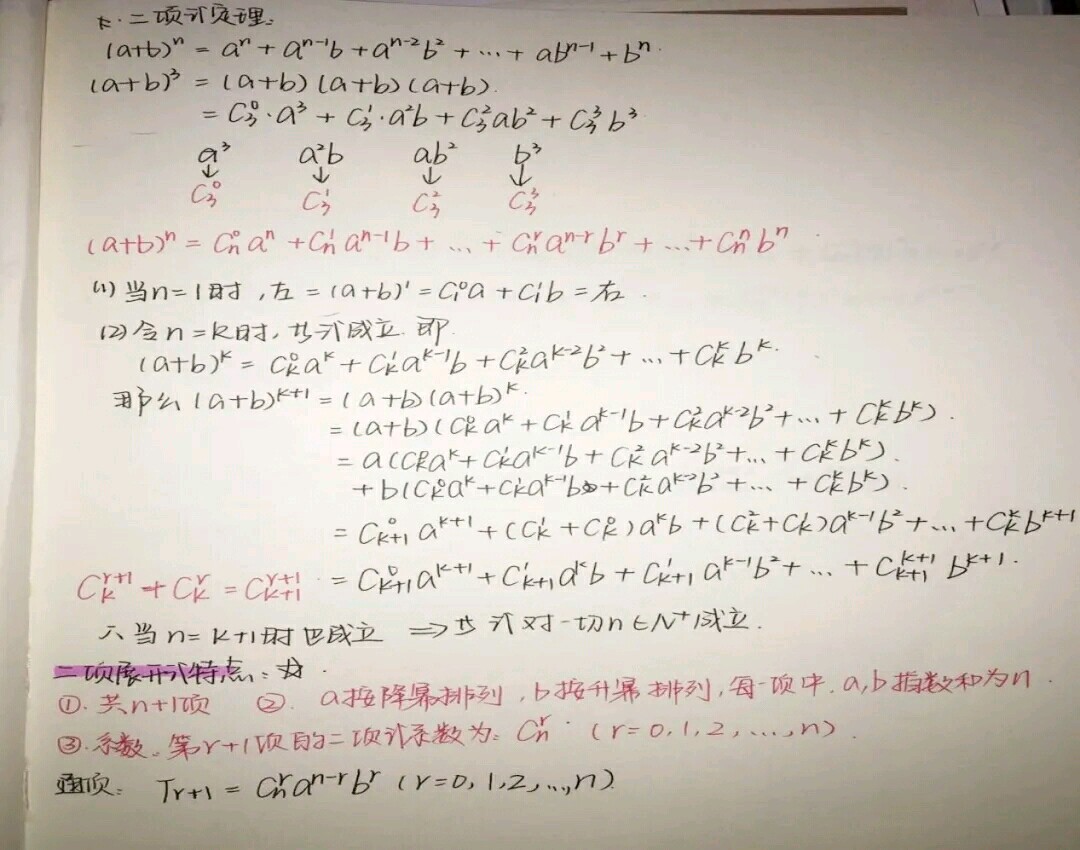 七.二项式定理:
(a+b)ⁿ = aⁿ + aⁿ⁻¹b + aⁿ⁻²b² + … + abⁿ⁻¹ + bⁿ.
(a+b)³ = (a+b)(a+b)(a+b).
= C₃⁰·a³ + C₃¹·a²b + C₃²ab² + C₃³b³
a³ a²b ab² b³
↓ ↓ ↓ ↓
C₃⁰ C₃¹ C₃² C₃³
(a+b)ⁿ = Cₙ⁰aⁿ + Cₙ¹aⁿ⁻¹b + … + Cₙʳaⁿ⁻ʳbʳ + … + Cₙⁿbⁿ.
(1) 当n=1时,左=(a+b)¹=C₁⁰a+C₁¹b=右.
(2) 令n=k时,此式成立.即
(a+b)ᵏ = Cₖ⁰aᵏ + Cₖ¹aᵏ⁻¹b + Cₖ²aᵏ⁻²b² + … + Cₖᵏbᵏ.
那么(a+b)ᵏ⁺¹ = (a+b)(a+b)ᵏ.
= (a+b)(Cₖ⁰aᵏ + Cₖ¹aᵏ⁻¹b + Cₖ²aᵏ⁻²b² + … + Cₖᵏbᵏ).
= a(Cₖ⁰aᵏ + Cₖ¹aᵏ⁻¹b + Cₖ²aᵏ⁻²b² + … + Cₖᵏbᵏ).
+ b(Cₖ⁰aᵏ + Cₖ¹aᵏ⁻¹b + Cₖ²aᵏ⁻²b² + … + Cₖᵏbᵏ).
= Cₖ₊₁⁰aᵏ⁺¹ + (Cₖ¹+Cₖ⁰)aᵏb + (Cₖ²+Cₖ¹)aᵏ⁻¹b² + … + Cₖᵏbᵏ⁺¹
Cₖʳ⁺¹ + Cₖʳ = Cₖ₊₁ʳ⁺¹ = Cₖ₊₁⁰aᵏ⁺¹ + Cₖ₊₁¹aᵏb + Cₖ₊₁¹aᵏ⁻¹b² + … + Cₖ₊₁ᵏ⁺¹bᵏ⁺¹.
∴当n=k+1时也成立 ⇒ 此式对一切n∈N⁺成立.
二项展开式特点:☆.
①.共n+1项 ②. a按降幂排列,b按升幂排列,每一项中.a,b指数和为n.
③.系数.第r+1项的二项式系数为:Cₙʳ. (r=0,1,2,…,n).
通项: Tᵣ₊₁ = Cₙʳaⁿ⁻ʳbʳ (r=0,1,2,…,n)